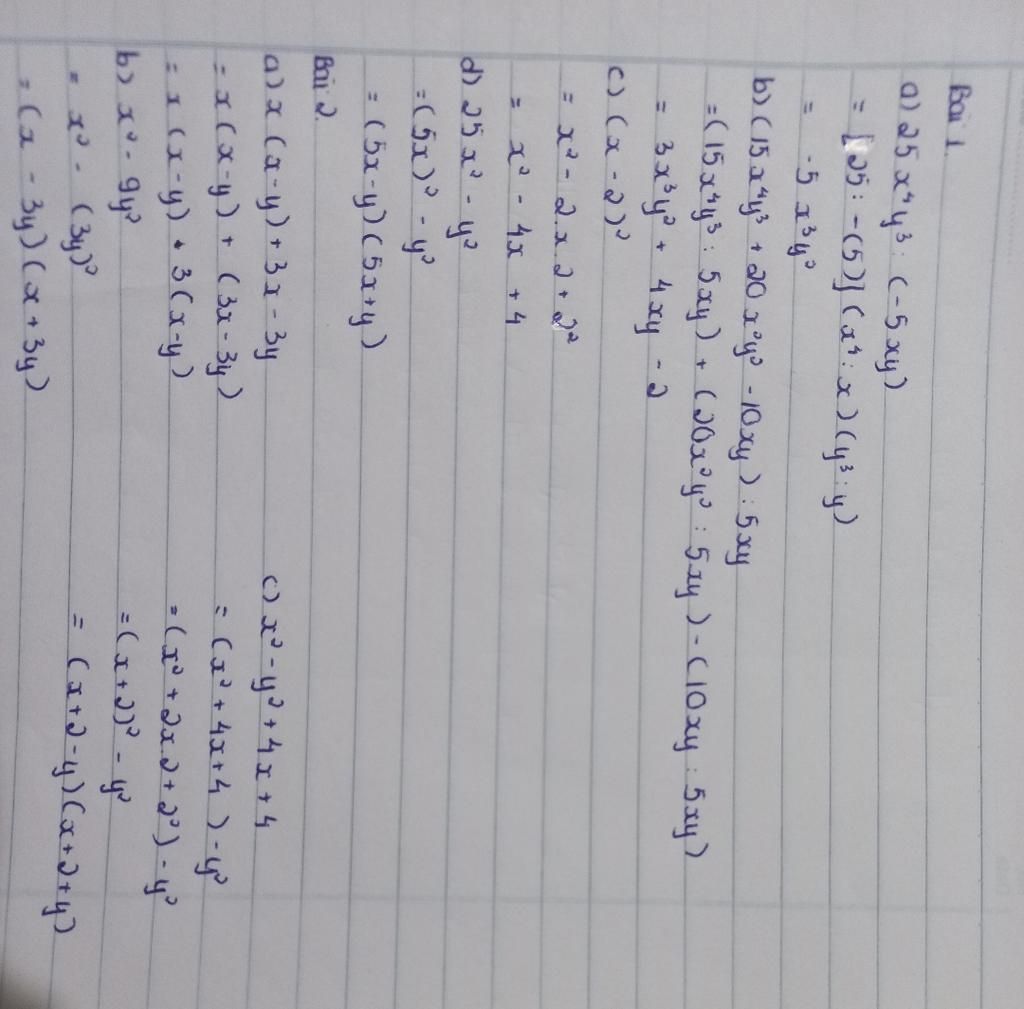 Bài 1.
a) 25x⁴y³ : (-5xy)
= [25 : -(5)] (x⁴ : x) (y³ : y)
= -5x³y²
b) (15x⁴y³ + 20x²y² - 10xy) : 5xy
= (15x⁴y³ : 5xy) + (20x²y² : 5xy) - (10xy : 5xy)
= 3x³y² + 4xy - 2
c) (x - 2)²
= x² - 2.x.2 + 2²
= x² - 4x + 4
d) 25x² - y²
= (5x)² - y²
= (5x-y)(5x+y)
Bài 2.
a) x(x-y) + 3x - 3y
= x(x-y) + (3x-3y)
= x(x-y) + 3(x-y)
b) x² - 9y²
= x² - (3y)²
= (x - 3y)(x + 3y)
c) x² - y² + 4x + 4
= (x² + 4x + 4) - y²
= (x² + 2x.2 + 2²) - y²
= (x+2)² - y²
= (x+2-y)(x+2+y)